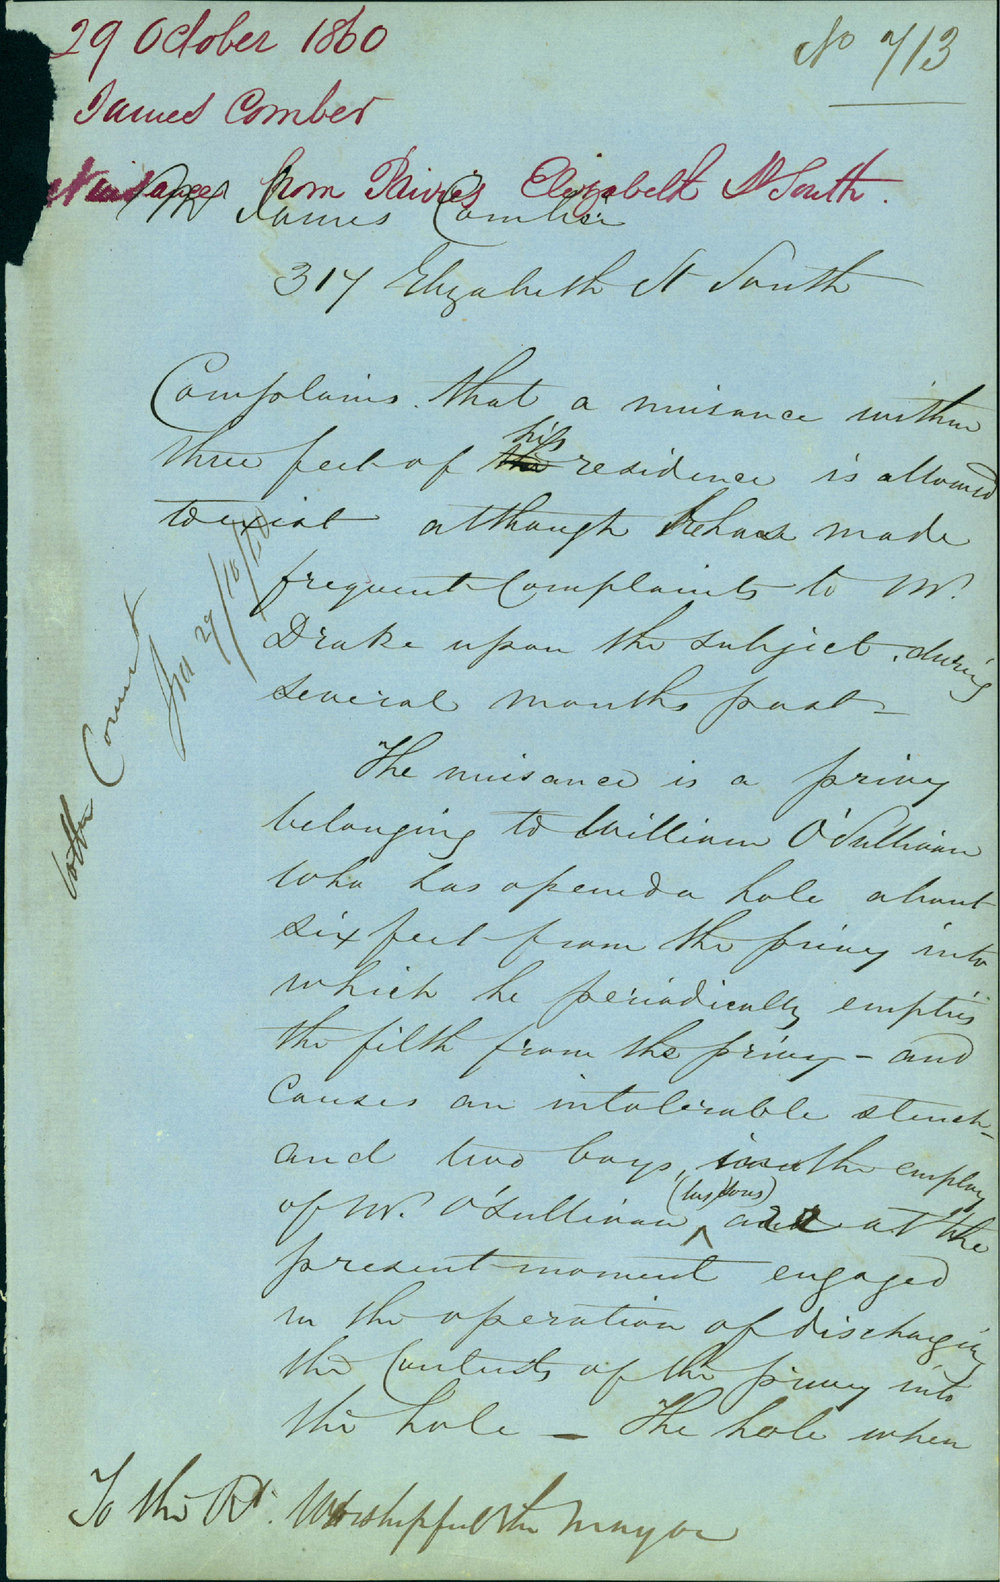 29 October 1860
No 713
James Comber
Nuisances from Privies Elizabeth St South.
Mr James Comber
317 Elizabeth St South
Complains that a nuisance within
three feet of the his residence is allowed
to exist although he has made
frequent Complaints to Mr.
Drake upon the subject, during
several months past -
The nuisance is a privy
belonging to William O'Sullivan
who has opened a hole about
six feet from the privy into
which he periodically empties
the filth from the privy - and
causes an intolerable stench -
and two boys, in the employ
of Mr. O'Sullivan (his sons) are at the
present moment engaged
in the operation of discharging
the Contents of the privy into
the hole - The hole when
To the Rt. Worshipful the Mayor
29/10/60